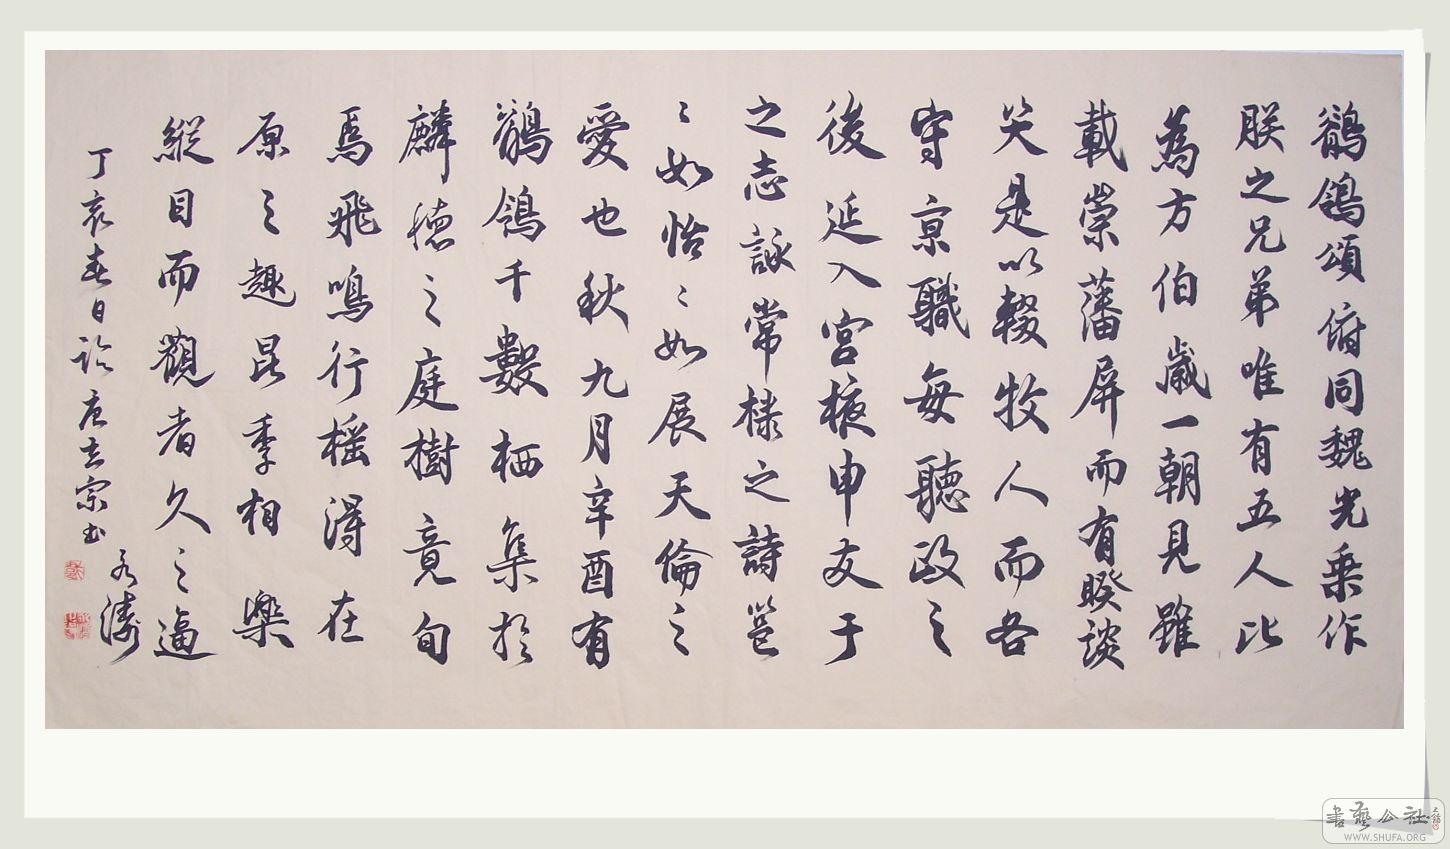 鶺鴒頌俯同魏光乗作
朕之兄弟唯有五人比
為方伯歲一朝見雖
載崇藩屏而有暌談
笑是以輟牧人而各
守京職每聽政之
後延入宮掖申友于
之志詠常棣之詩邕
〻如怡〻如展天倫之
愛也秋九月辛酉有
鶺鴒千數栖集於
麟德之庭樹竟旬
焉飛鳴行搖得在
原之趣昆季相樂
縱目而觀者久之逼
丁亥春日臨唐玄宗書
書藝公社
WWW.SHUFA.ORG